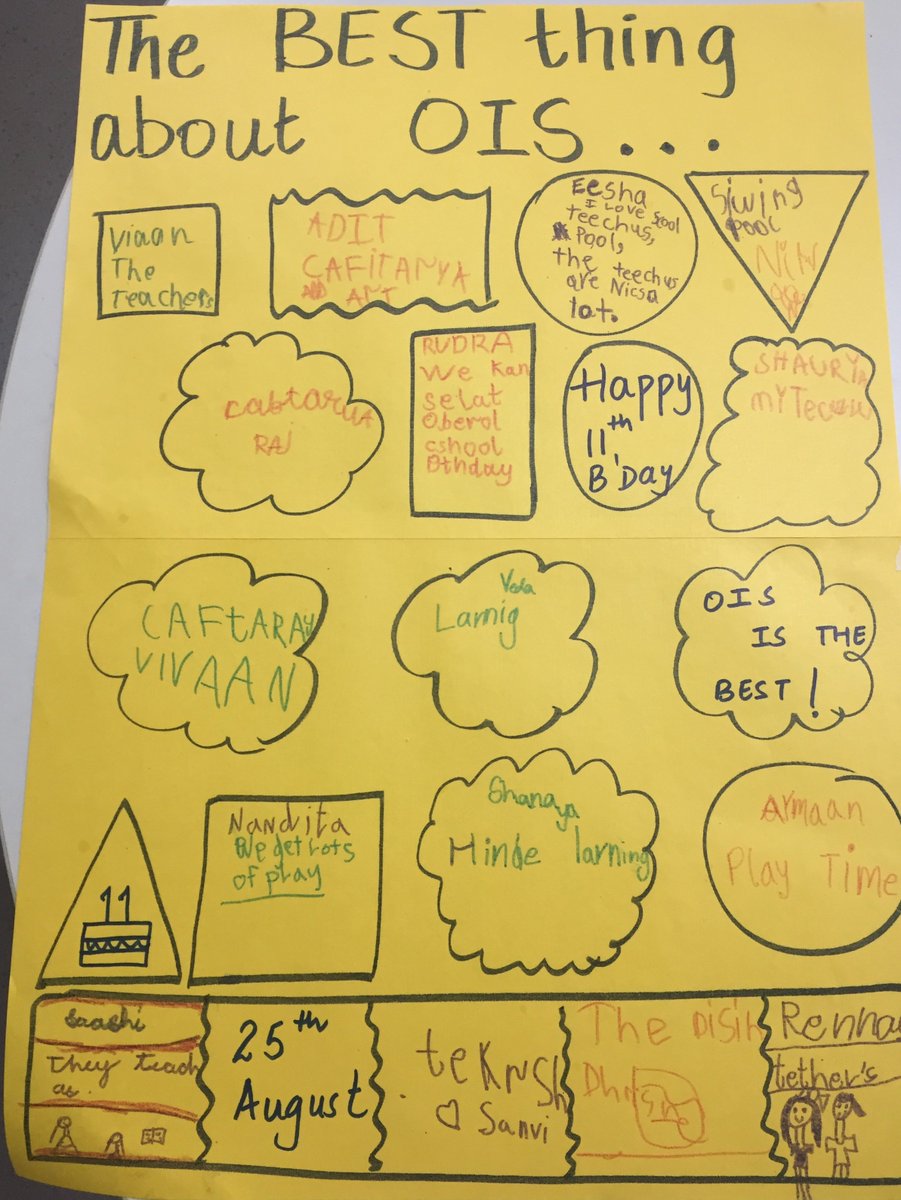 The BEST thing
about OIS...
Viaan
The
Teachers
ADIT
CAFITANYA
ANT
Eesha
I Love scool
teechus,
Pool,
the teechus
are Nicsa
lat.
Siwing
pool
RUDRA
We Kan
selat
Oberol
cshool
Bthday
Happy
11th
B'Day
SHAURYA
MY Tecuw
cabtarua
RAJ
CAFtARAY
VIVAAN
Veda
Larnig
OIS
IS THE
BEST!
11
Nandita
We get lots
of play
Shanaya
Hinde larning
Armaan
Play Time
Saashi
They teach
as.
25th
August
teKNSh
Sanvi
The Disih
Renna
tether's